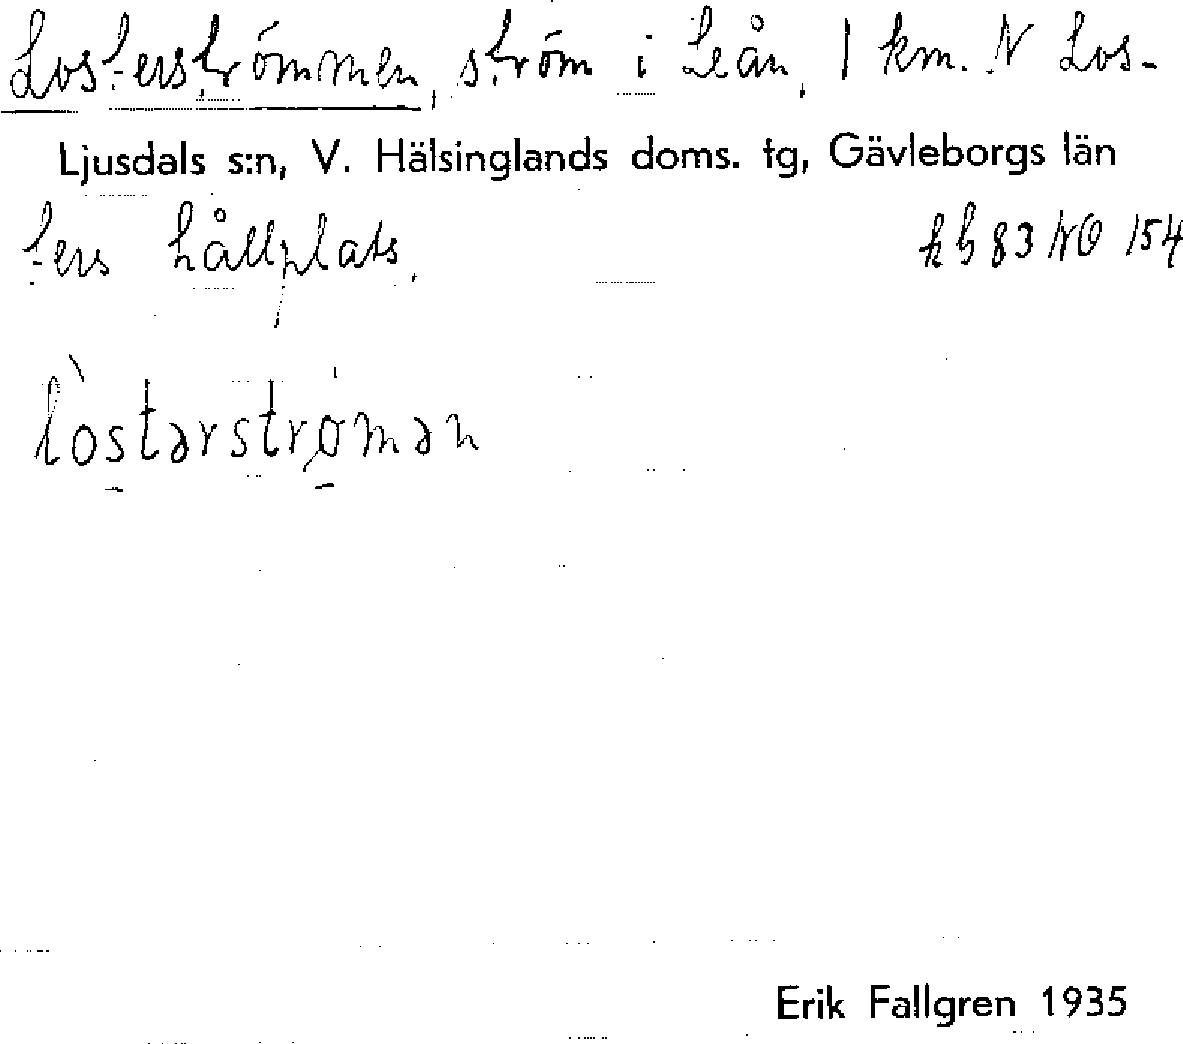 Losterströmmen, ström i Leån, 1 km. N Los-
Ljusdals s:n, V. Hälsinglands doms. tg, Gävleborgs län
ters hållplats. kb 83 NO 154
lòstərstrømən
Erik Fallgren 1935